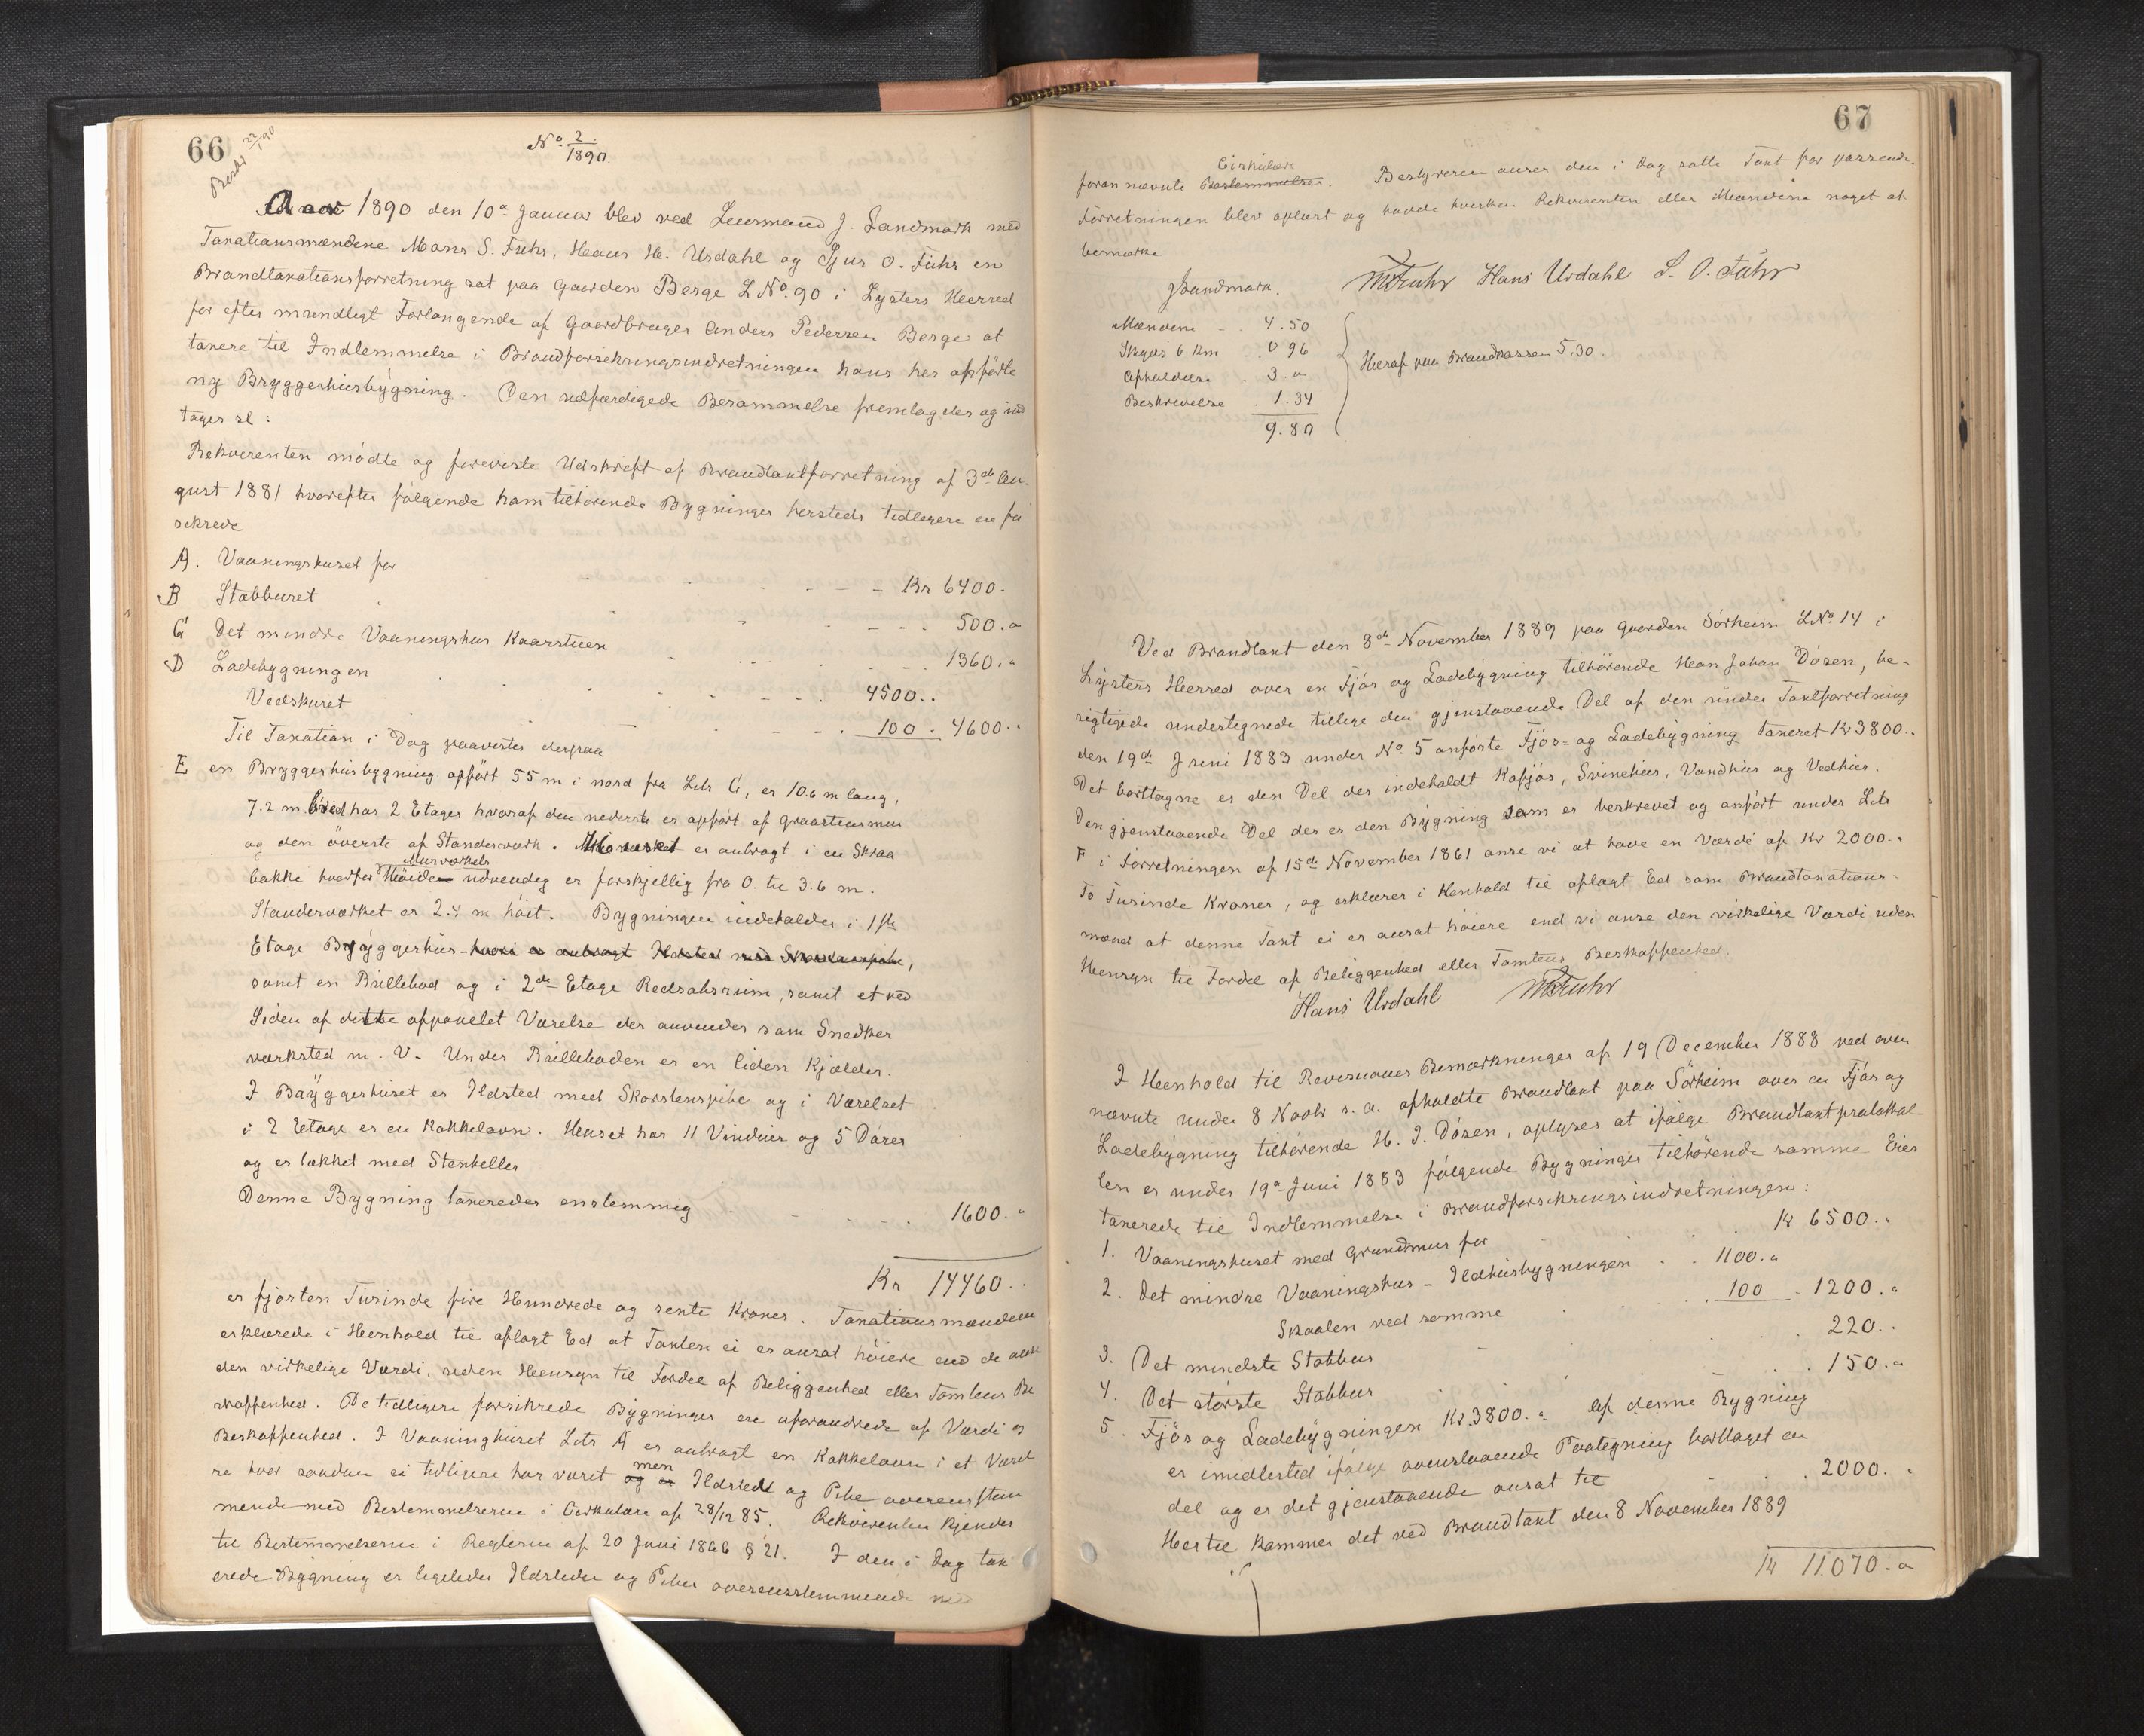 66
Beskr 22/1 90
No. 2/1890
Aar 1890 den 10de Januar blev ved Lensmand J. Landmark med
Taxationsmændene Mons S. Fuhr, Hans H. Urdahl og Sjur O. Fuhr en
Brandtaxationsforretning sat paa Gaarden Berge L No. 90 i Lysters Herred
for efter mundtligt Forlangende af Gaardbruger Anders Pedersen Berge at
taxere til Indlemmelse i Brandforsikringsindretningen hans her opførte
ny Bryggerhusbygning. Den udfærdigede Berammelse fremlagdes og ind
tages sl:
Rekvirenten mødte og foreviste Udskrift af Brandtaxtforretning af 3de Au-
gust 1881 hvorefter følgende ham tilhørende Bygninger hersteds tidligere ere for
sikrede
A. Vaaningshuset for Kr 6400.
B Stabburet 500."
C Det mindre Vaaningshus Kaarstuen 1360."
D Ladebygningen 4500..
Vedskuret 100. 4600."
Til Taxation i Dag paavistes derpaa
E en Bryggerhusbygning opført 55 m i nord fra Litr C, er 10.6 m lang,
7.2 m bred har 2 Etager hvoraf den nederste er opført af Graastensmur
og den øverste af Stænderværk. Huset er anbragt i en Skraa
bakke hvorfor Murværkets Høide udvendig er forskjellig fra 0. til 3.6 m.
Stænderværket er 2.4 m høit. Bygningen indeholder i 1ste
Etage Bryggerhus hvori er anbragt Ildsted med Skorstenspibe,
samt en Rullebod og i 2de Etage Redskabsrum, samt et ved
Siden af dette afpanelet Værelse der anvendes som Snedker
værksted m. V. Under Rulleboden er en liden Kjælder.
I Bryggerhuset er Ildsted med Skorstenspibe og i Værelset
i 2 Etage er en Kakkelovn. Huset har 11 Vinduer og 5 Døres
og er tækket med Stenheller
Denne Bygning taxeredes enstemmig 1600."
Kr 14460..
er fjorten Tusinde fire Hundrede og sexti Kroner. Taxationsmændene
erklærede i Henhold til aflagt Ed at Taxten ei er ansat høiere end de anse
den virkelige Værdi, uden Hensyn til Fordel af Beliggenhed eller Tomtens Be
skaffenhed. De tidligere forsikrede Bygninger ere uforandrede af Værdi og
Beskaffenhed. I Vaaninghuset Litr A er anbragt en Kakkelovn i et Værel
se hvor saadan ei tidligere har været og er men Ildsted og Pibe overensstem
mende med Bestemmelserne i Cirkulære af 28/12 85. Rekvirenten kjender
til Bestemmelserne i Reglerne af 20 Juni 1866 § 21. I den i Dag tax
erede Bygning er ligeledes Ildsteder og Piber overensstemmende med
67
foran nævnte Bestemmelser Cirkulære. Bestyreren anser den i Dag satte Taxt for passende.
Forretningen blev oplæst og havde hverken Rekvirenten eller Mændene noget at
bemærke
JLandmark. MSFuhr Hans Urdahl S. O. Fuhr
Mændene 4.50
Skyds 6 Km 0 96
Opholdelse 3."
Beskrivelse 1.34
9.80
Heraf paa Brandkassen 5.30.
Ved Brandtaxt den 8de November 1889 paa Gaarden Sørheim LNo. 14 i
Lysters Herred over en Fjøs og Ladebygning tilhørende Hans Johan Døsen, be-
sigtigede undertegnede tillige den gjenstaaende Del af den under Taxtforretning
den 19de Juni 1883 under No 5 anførte Fjøs- og Ladebygning taxeret Kr 3800..
Det borttagne er den Del der indeholdt Kofjøs, Svinehus, Vandhus og Vedhus.
Den gjenstaaende Del der er den Bygning som er beskrevet og anført under Litr
F i Forretningen af 15de November 1861 anse vi at have en Værdi af Kr 2000..
To Tusinde Kroner, og erklærer i Henhold til aflagt Ed som Brandtaxations-
mænd at denne Taxt ei er ansat høiere end vi anse den virkelige Værdi uden
Hensyn til Fordel af Beliggenhed eller Tomtens Beskaffenhed.
Hans Urdahl MSFuhr
I Henhold til Revisionens Bemærkninger af 19 December 1888 ved oven
nævnte under 8 Novbr s. a. afholdte Brandtaxt paa Sørheim over en Fjøs og
Ladebygning tilhørende H. J. Døsen, oplyses at ifølge Brandtaxtprotokol
len er under 19de Juni 1883 følgende Bygninger tilhørende samme Eier
taxerede til Indlemmelse i Brandforsikringsindretningen:
1. Vaaningshuset med Grundmur for Kr 6500..
2. Det mindre Vaaningshus - Ildhusbygningen 1100."
Skaalen ved samme 100 1200."
3. Det mindste Stabbur 220..
4. Det største Stabbur 150."
5. Fjøs og Ladebygningen Kr.3800." Af denne Bygning
er imidlertid ifølge ovenstaaende Paategning borttaget en
del og er det gjenstaaende ansat til 2000.
Hertil kommer det ved Brandtaxt den 8 November 1889
Kr 11.070."